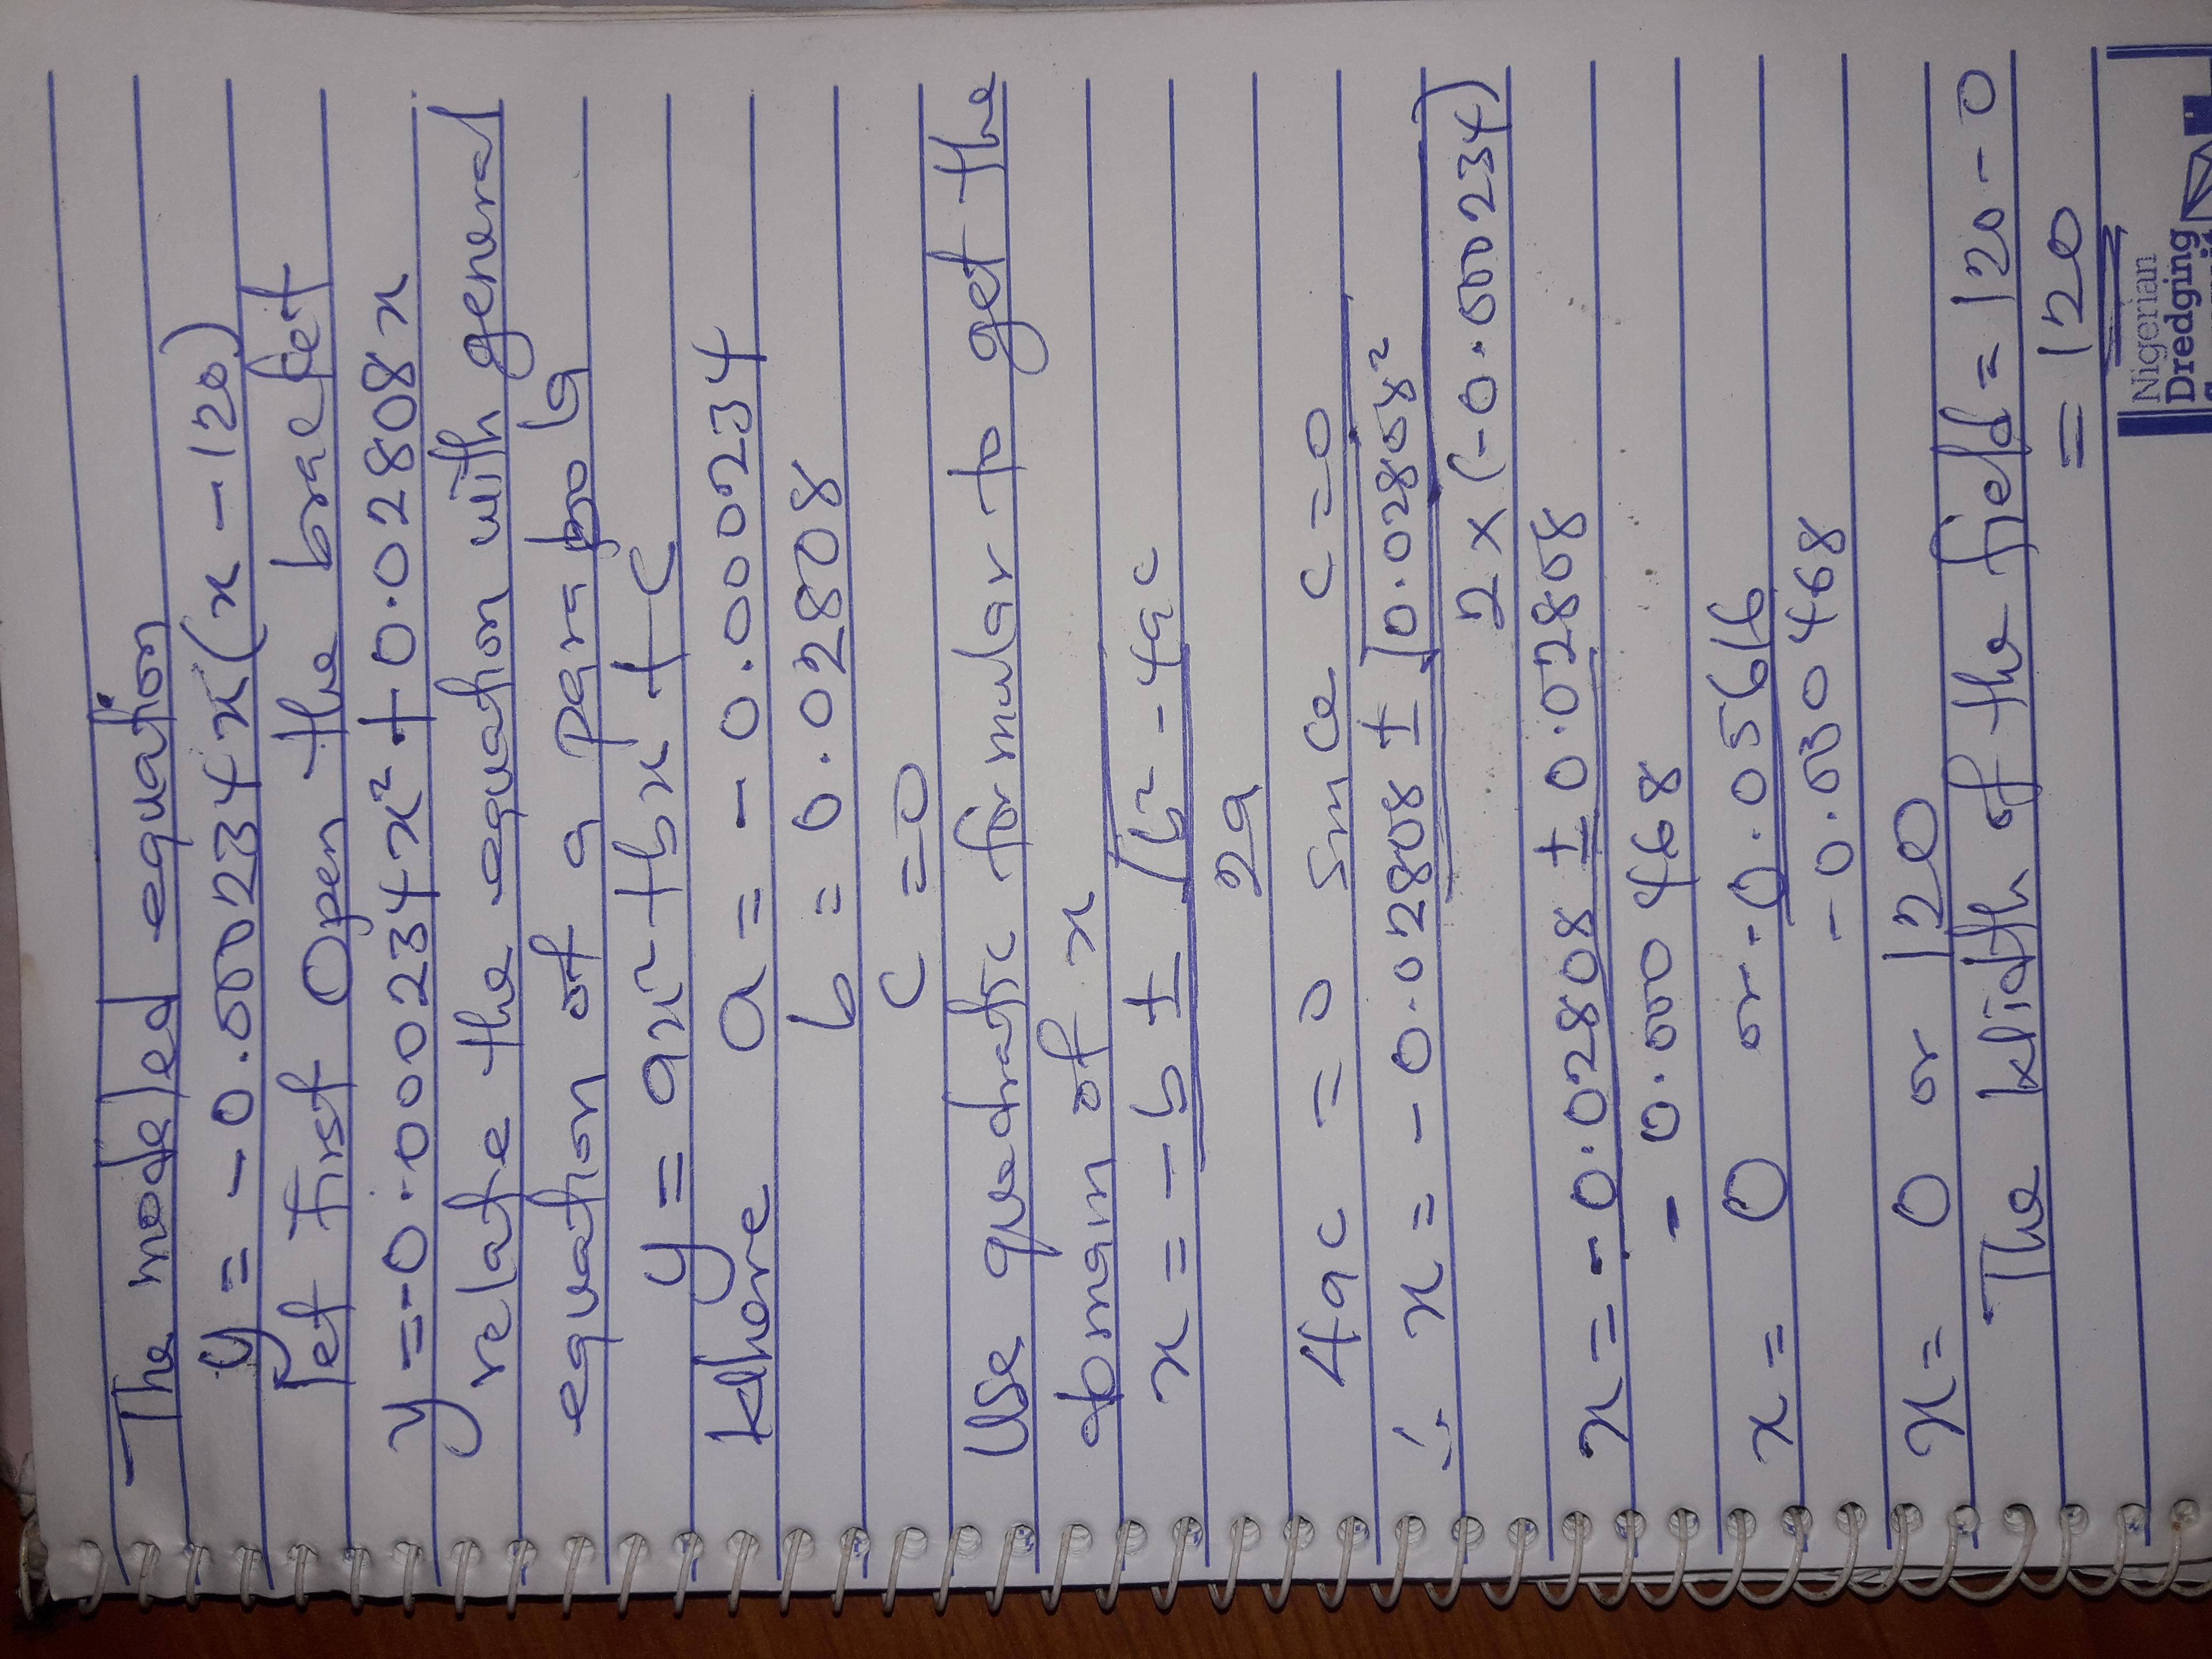 The modeled equation
y = -0.000234x(x-120)
let first open the bracket
y = -0.000234x² + 0.02808x
relate the equation with general
equation of a parabola
y = ax² + bx + c
Where a = -0.000234
b = 0.02808
c = 0
Use quadratic formular to get the
domain of x
x = -b ± √b² - 4ac
2a
4ac = 0 since c = 0
∴ x = -0.02808 ± √0.02808²
2 x (-0.000234)
x = -0.02808 ± 0.02808
-0.000468
x = 0 or -0.05616
-0.000468
x = 0 or 120
The Width of the field = 120 - 0
= 120
Nigerian
Dredging